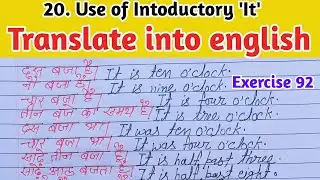 20. Use of Intoductory 'It'
Translate into english
Exercise 92
दस बजा है। It is ten o'clock.
नौ बजा है। It is nine o'clock.
चार बजा है। It is four o'clock.
तीन बजे का समय है। It is tree o'clock.
दस बजा था। It was ten o'clock.
चार बजा था। It was four o'clock.
साढ़े तीन बजा है। It is half past three.
साढ़े आठ बजता है। It is half past eight.